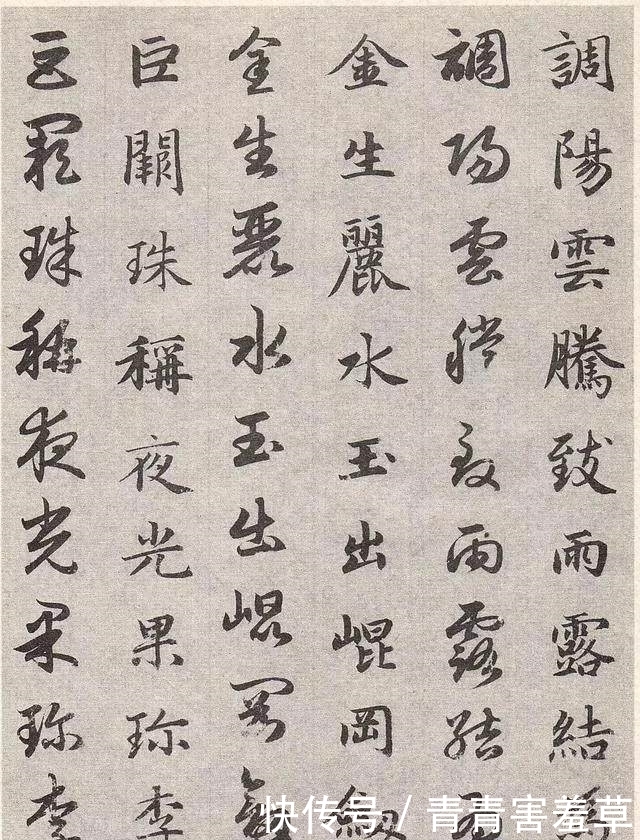 調陽雲騰致雨露結
調陽雲騰致雨露結
金生麗水玉出崐岡劔
金生麗水玉出崐岡
巨闕珠稱夜光果珍李
巨闕珠稱夜光果珍李
快传号 / 青青害羞草